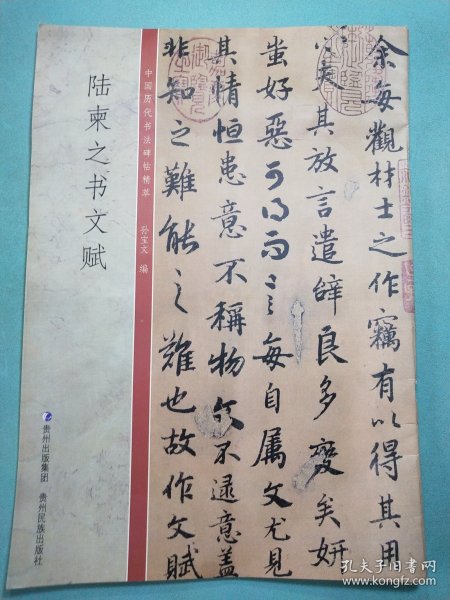 余每觀材士之作竊有以得其用
心夫其放言遣辭良多變矣妍
蚩好惡可得而言每自屬文尤見
其情恒患意不稱物文不逮意蓋
非知之難能之難也故作文賦
中国历代书法碑帖精萃 孙宝文 编
陆柬之书文赋
贵州出版集团
贵州民族出版社
孔夫子旧书网
www.kongfz.com